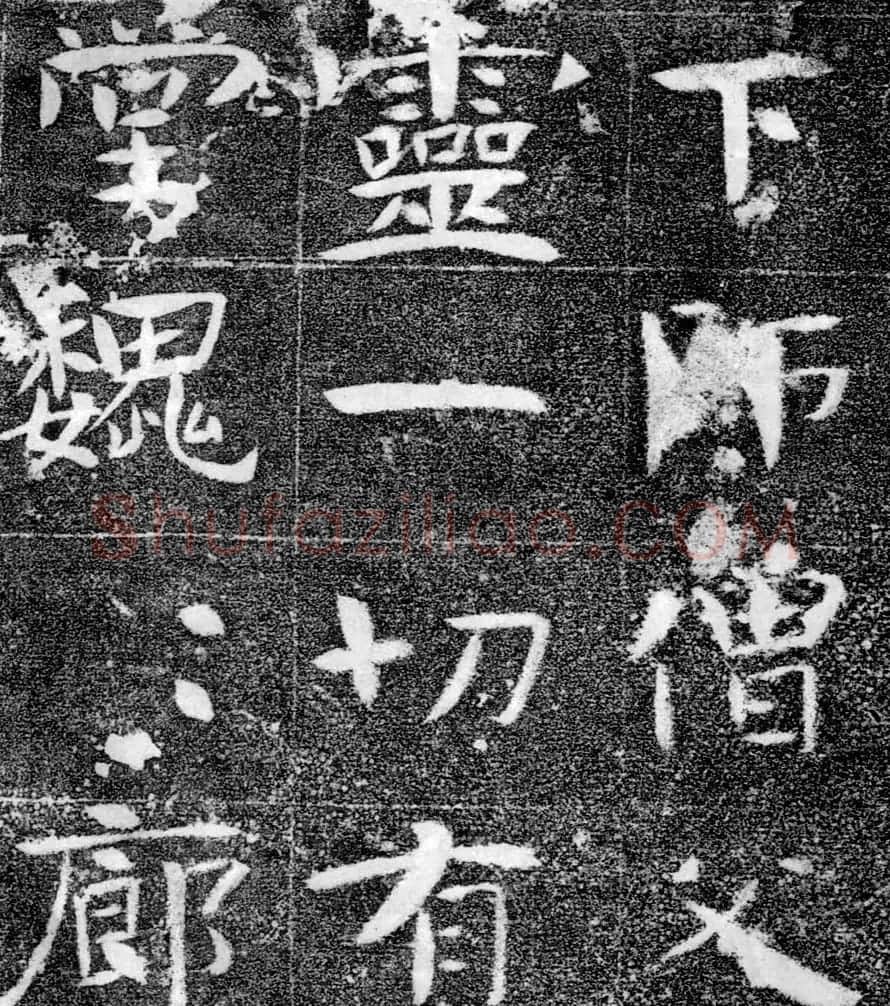 下師僧父
靈一切有
堂魏〻廊
Shufaziliao.COM